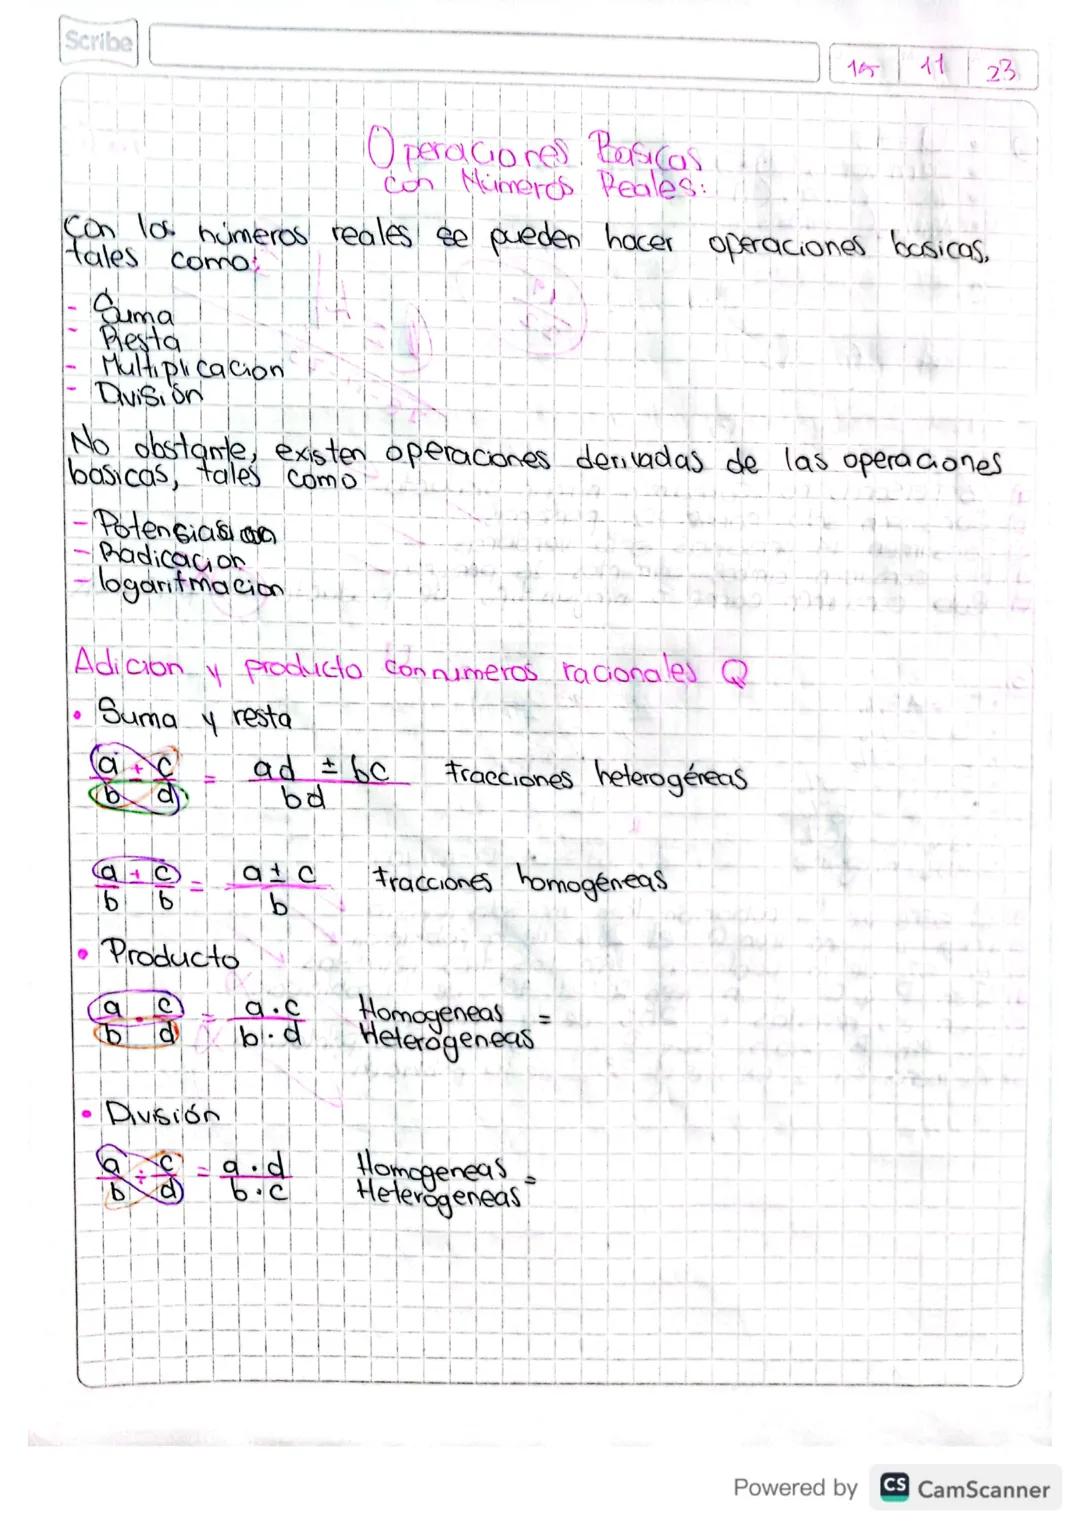 Scribe
15 11 23
Operaciones Basicas
con Números Reales:
Con los números reales se pueden hacer operaciones basicas,
tales como:
- Suma
- Resta
- Multiplicacion
- División
No obstante, existen operaciones derivadas de las operaciones
basicas, tales como
- Potensiasion
- Radicacion
- logaritmacion
Adicion y producto con numeros racionales Q
• Suma y resta
a/b ± c/d = ad ± bc / bd fracciones heterogéneas
a/b + c/b = a ± c / b fracciones homogéneas
• Producto
a/b . c/d = a.c / b.d Homogeneas =
Heterogeneas
• División
a/b ÷ c/d = a.d / b.c Homogeneas =
Heterogeneas
Powered by CS CamScanner